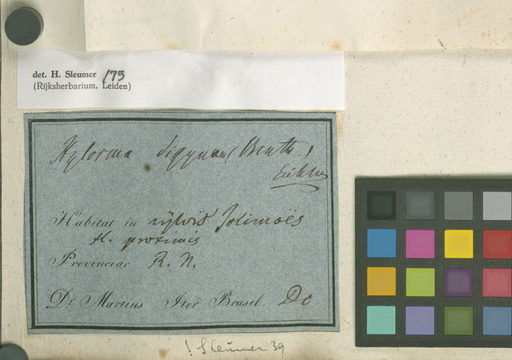 det. H. Sleumer 175
(Rijksherbarium, Leiden)
Xylosma digynum (Benth.)
Eichler
Habitat in sylvis Solimoës
fl. proximis
Provinciae R. N.
Dr Martius Iter Brasil. Do
! Sleumer 39